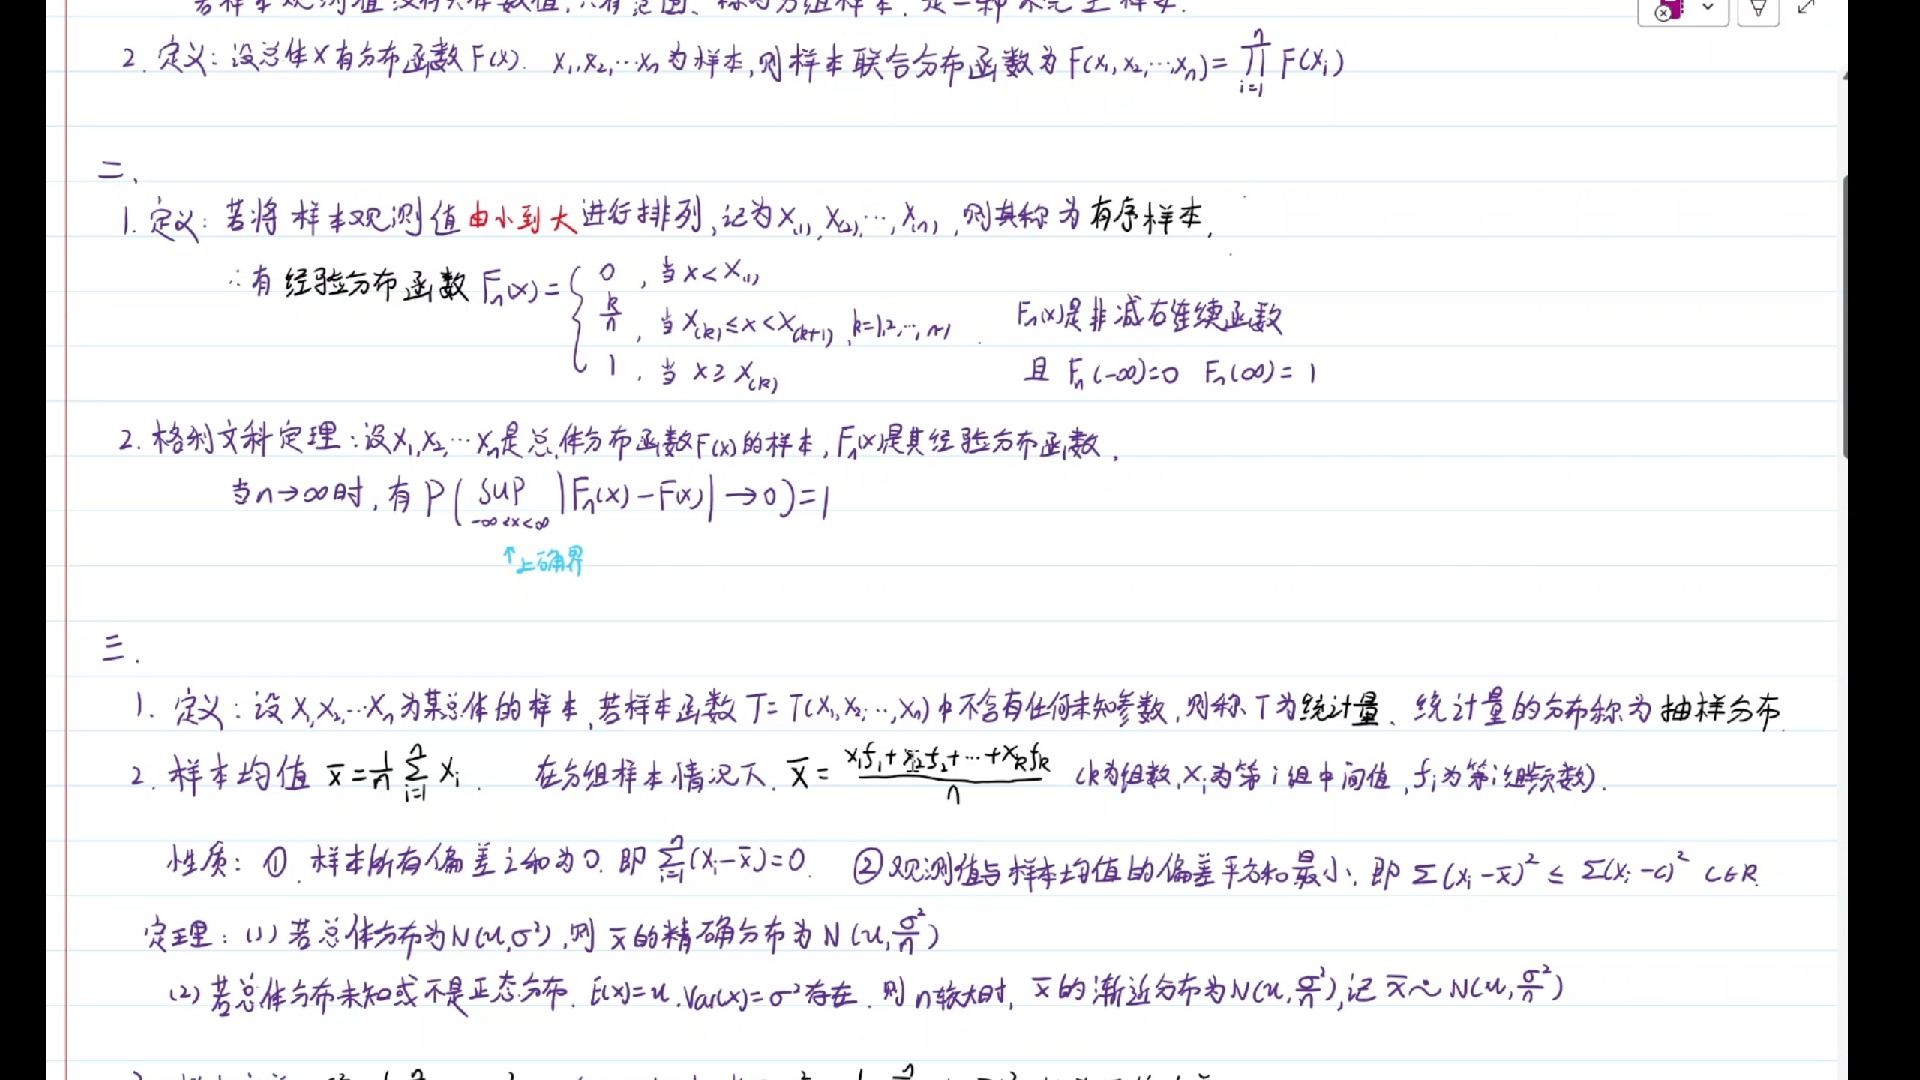 2. 定义：设总体X有分布函数F(x). x₁,x₂,…xₙ为样本,则样本联合分布函数为F(x₁,x₂,…,xₙ)=∏ᵢ₌₁ⁿ F(xᵢ)
二、
1. 定义：若将样本观测值由小到大进行排列,记为x₍₁₎,x₍₂₎,…,x₍ₙ₎,则其称为有序样本,
∴有经验分布函数Fₙ(x)={ 0 , 当x<x₍₁₎
k/n , 当x₍ₖ₎≤x<x₍ₖ₊₁₎, k=1,2,…,n-1. Fₙ(x)是非减右连续函数
1 , 当x≥x₍ₖ₎ 且 Fₙ(-∞)=0 Fₙ(∞)=1
2. 格利文科定理：设x₁,x₂,…xₙ是总体分布函数F(x)的样本,Fₙ(x)是其经验分布函数,
当n→∞时,有P(sup |Fₙ(x)-F(x)|→0)=1
-∞<x<∞
↑上确界
三.
1. 定义：设x₁,x₂,…xₙ为某总体的样本,若样本函数T=T(x₁,x₂,…,xₙ)中不含有任何未知参数,则称T为统计量、统计量的分布称为抽样分布.
2. 样本均值 x̄=1/n ∑ᵢ₌₁ⁿ xᵢ. 在分组样本情况下. x̄=(x₁f₁+x₂f₂+…+xₖfₖ)/n (k为组数,xᵢ为第i组中间值,fᵢ为第i组频数).
性质：① 样本所有偏差之和为0.即∑ᵢ₌₁ⁿ(xᵢ-x̄)=0. ②观测值与样本均值的偏差平方和最小,即∑(xᵢ-x̄)²≤∑(xᵢ-c)² c∈R.
定理：(1) 若总体分布为N(μ,σ²),则x̄的精确分布为N(μ,σ²/n)
(2) 若总体分布未知或不是正态分布. E(x)=μ.Var(x)=σ²存在.则n较大时,x̄的渐近分布为N(μ,σ²/n),记x̄~N(μ,σ²/n)